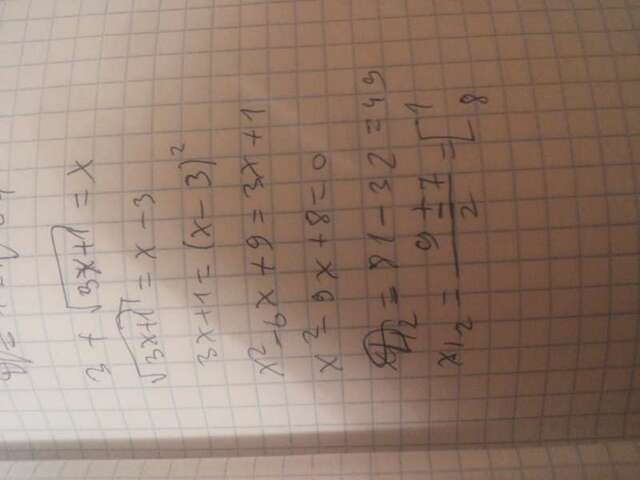 3 + √3x+1 = x
√3x+1 = x - 3
3x+1 = (x - 3)²
x² - 6x + 9 = 3x + 1
x² - 9x + 8 = 0
= 81 - 32 = 49
x₁,₂ = 9 ± 7 / 2 = [ 1 8